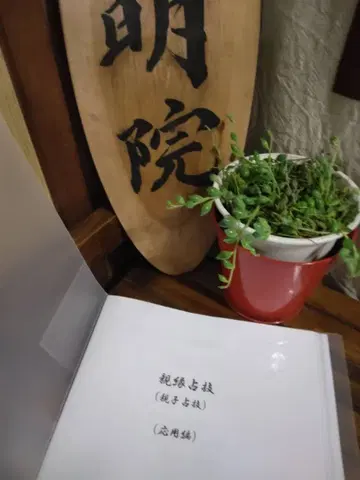 明
院
親縁占技
(親子占技)
(応用編)